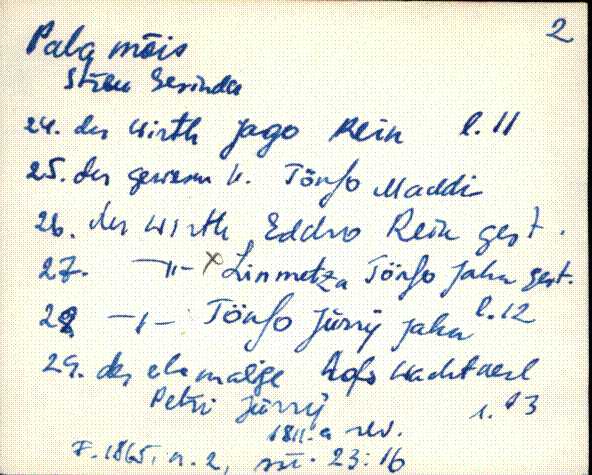 2
Pala mõis
24. der Wirth Jago Rein l. 11
25. der gewesen W. Tönso Maddi
26. der Wirth Eddro Rein gest.
27. -"- × Linmetza Tönso Jahn gest.
28 -"- Tönso Jürry Jahn l. 12
29. der ehmalige Hofs Wachtkerl
Petri Jürry l. 13
1811. a rev.
F. 1865, n. 2, sü. 23:16